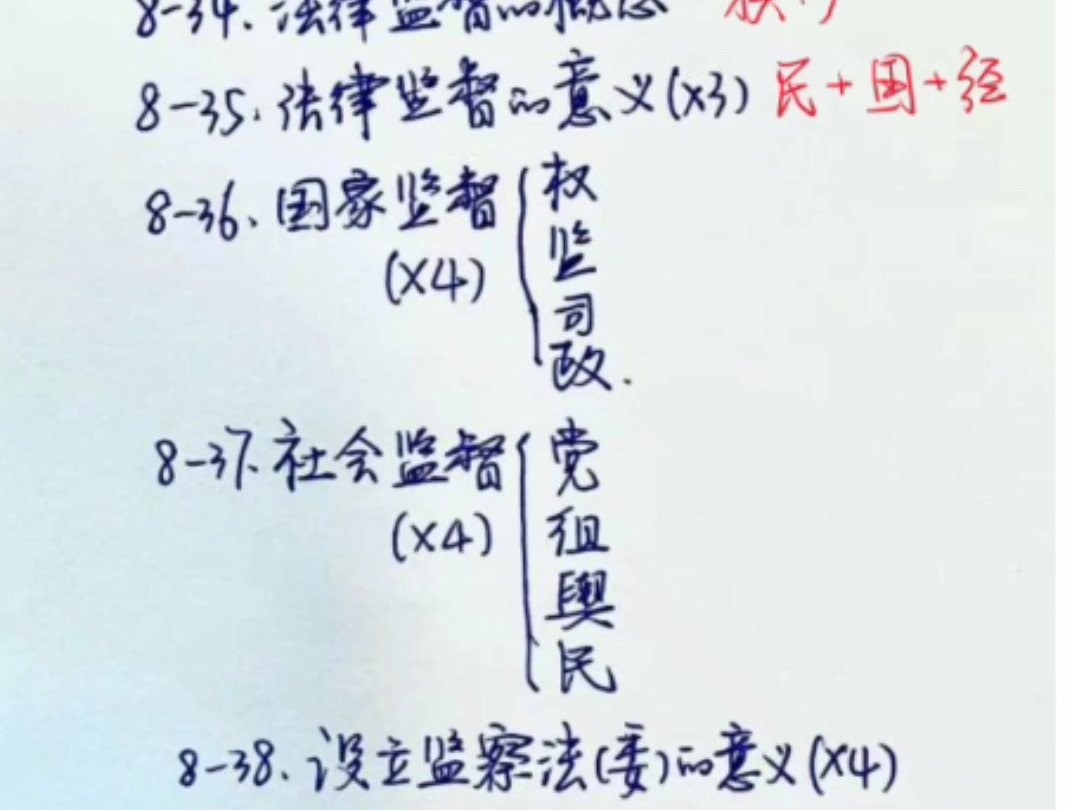 8-34. 法律监督的概念
8-35. 法律监督的意义(×3) 民+国+经
8-36. 国家监督(×4) { 权
监
司
政.
8-37. 社会监督(×4) { 党
组
舆
民
8-38. 设立监察法(委)的意义(×4)